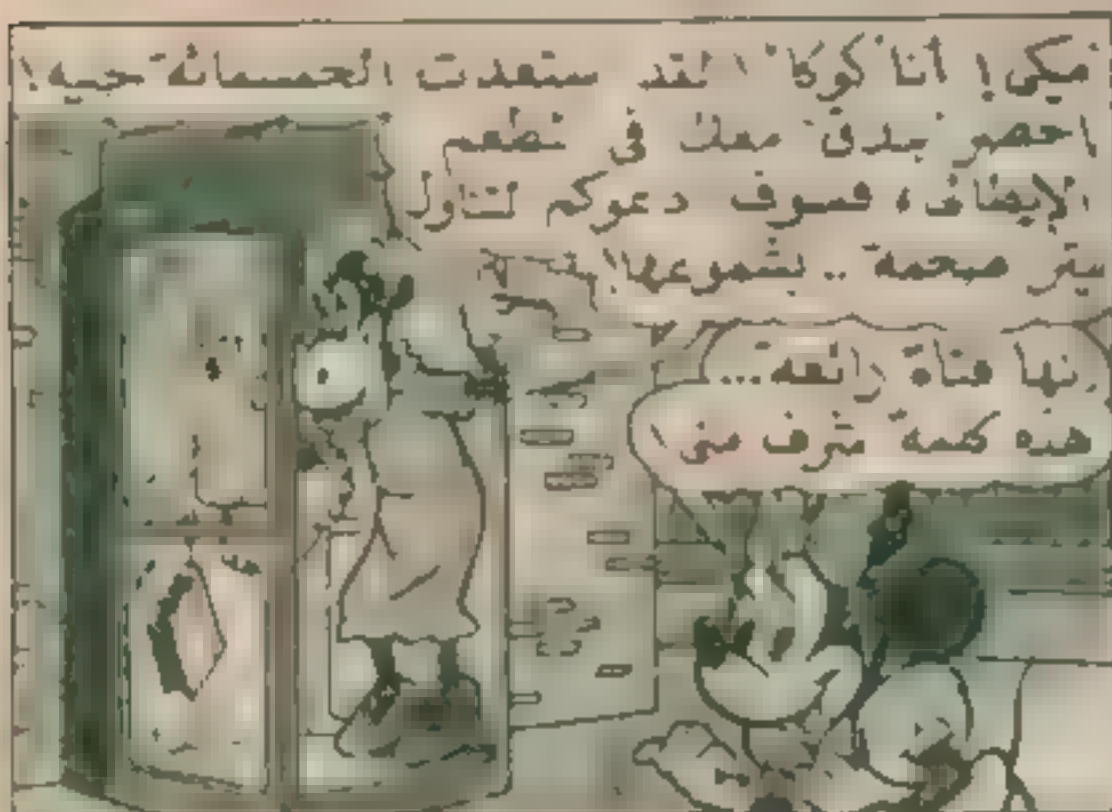 ميكى! أنا كوكا! لقد ستعدت الخمسمائة جنيه!
احضر بندق معك فى مطعم
الإيطالى، فسوف دعوكم لتناول
بيتزا ضخمة .. بشموعها!
إنها فتاة رائعة...
هذه كلمة شرف منى!